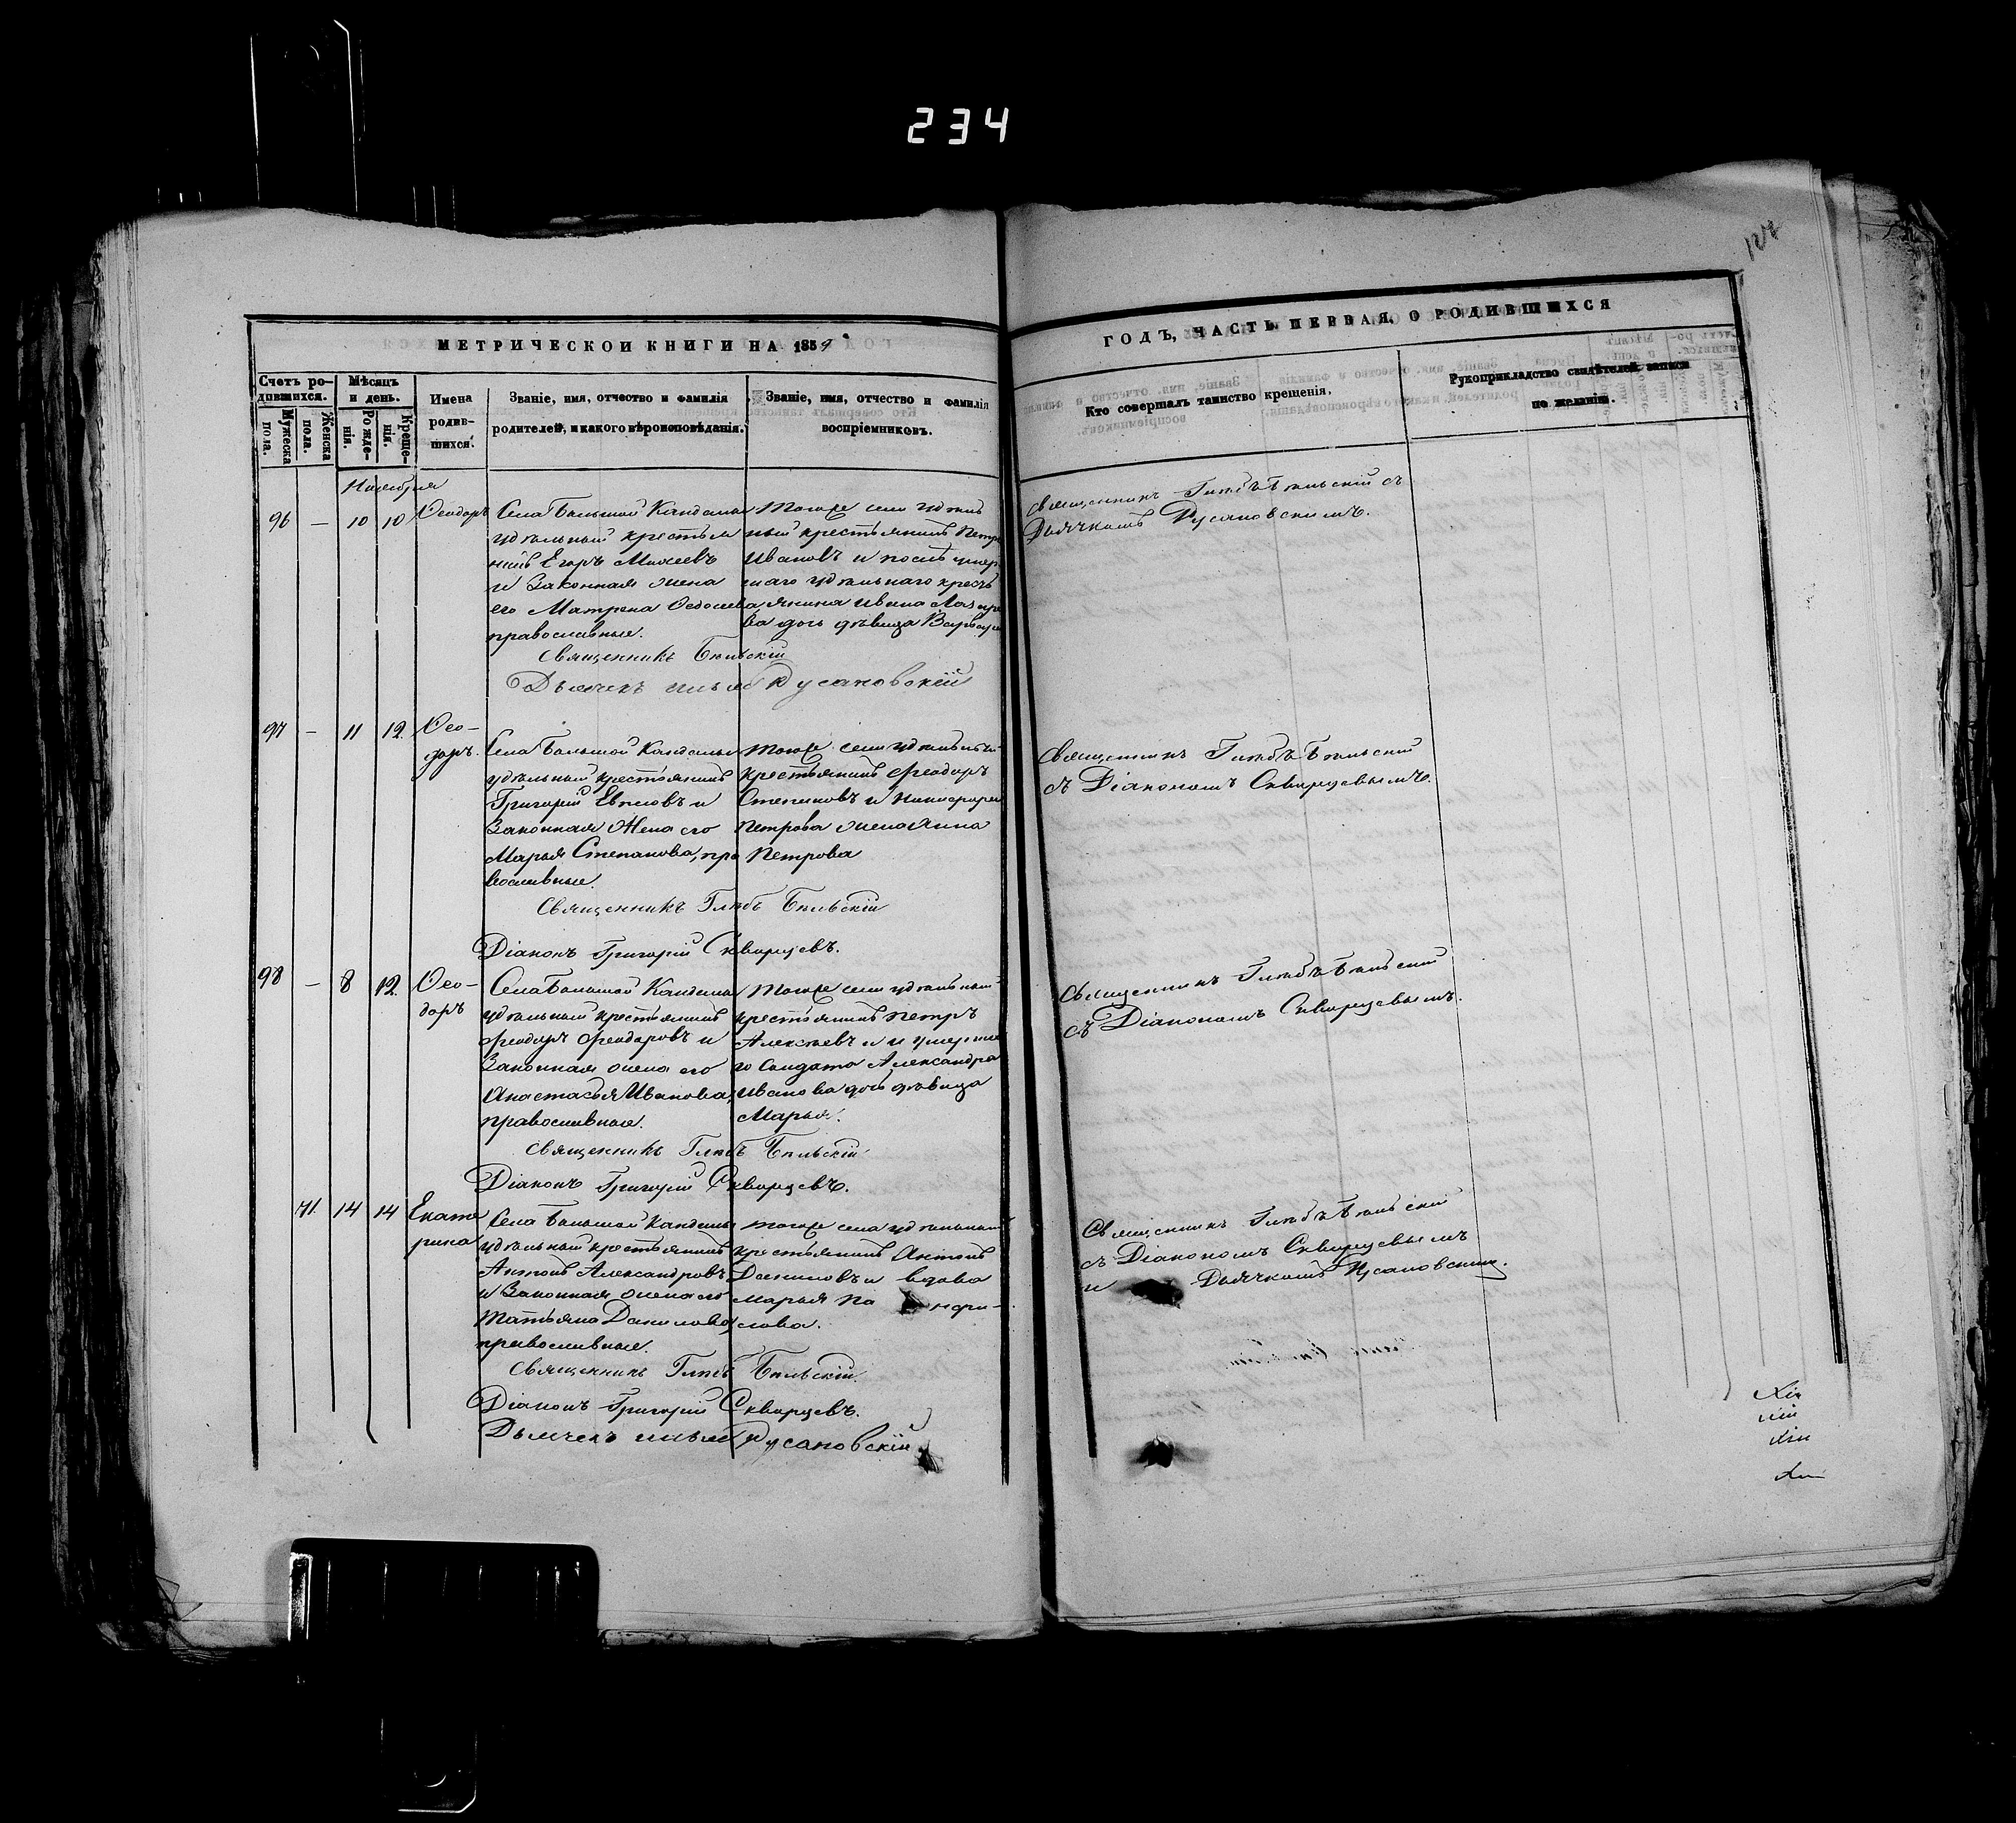 234
127
МЕТРИЧЕСКОЙ КНИГИ НА 1859
ГОДЪ, ЧАСТЬ ПЕРВАЯ, О РОДИВШИХСЯ
Счетъ родившихся.
Мужеска пола.
Женска пола.
Мѣсяцъ и день.
Рожденія.
Крещенія.
Имена родившихся.
Званіе, имя, отчество и фамилія
родителей, и какого вѣроисповѣданія.
Званіе, имя, отчество и фамилія
воспріемниковъ.
Кто совершалъ таинство крещенія.
Рукоприкладство свидѣтелей записи
по желанію.
Ноября
96 — 10 10 Ѳеодоръ
Села Большой Кандалы
удѣльный крестья
нинъ Егоръ Михеевъ
и законная жена
его Матрена Ѳедосеева
православные.
Тогоже села удѣль
ный крестьянинъ Петръ
Ивановъ и послѣ умер
шаго удѣльнаго кресть
янина Ивана
ва дочь дѣвица Варвара
Священникъ Глѣбъ Бѣльскій съ
Дьячкомъ Русановскимъ.
Священникъ Бѣльскій
Дьячекъ Русановскій
97 — 11 12 Ѳео-
доръ.
Села Большой Кандалы
удѣльный крестьянинъ
Григорій и
законная жена его
Марья Степанова, пра
вославные.
Тогоже села удѣльный
крестьянинъ Феодоръ
Степановъ и Никифора
Петрова жена Анна
Петрова
Священникъ Глѣбъ Бѣльскій
съ Діакономъ Скворцевымъ.
Священникъ Глѣбъ Бѣльскій
Діаконъ Григорій Скворцевъ.
98 — 8 12 Ѳео-
доръ
Села Большой Кандалы
удѣльный крестьянинъ
Феодоръ Феодоровъ и
законная жена его
Анастасья Иванова,
православные.
Тогоже села удѣльный
крестьянинъ Петръ
Алексѣевъ и умерша
го солдата Александра
Иванова дочь дѣвица
Марья.
Священникъ Глѣбъ Бѣльскій
съ Діакономъ Скворцевымъ.
Священникъ Глѣбъ Бѣльскій
Діаконъ Григорій Скворцевъ.
71. 14 14 Екате
рина
Села Большой Кандалы
удѣльный крестьянинъ
Антонъ Александровъ
и законная жена его
Татьяна Данилова,
православные.
Тогоже села удѣльный
крестьянинъ Антонъ
Даниловъ и вдова
Марья Па нфи-
лова.
Священникъ Глѣбъ Бѣльскій
съ Діакономъ Скворцевымъ
и Дьячкомъ Русановскимъ.
Священникъ Глѣбъ Бѣльскій.
Діаконъ Григорій Скворцевъ.
Дьячекъ Русановскій